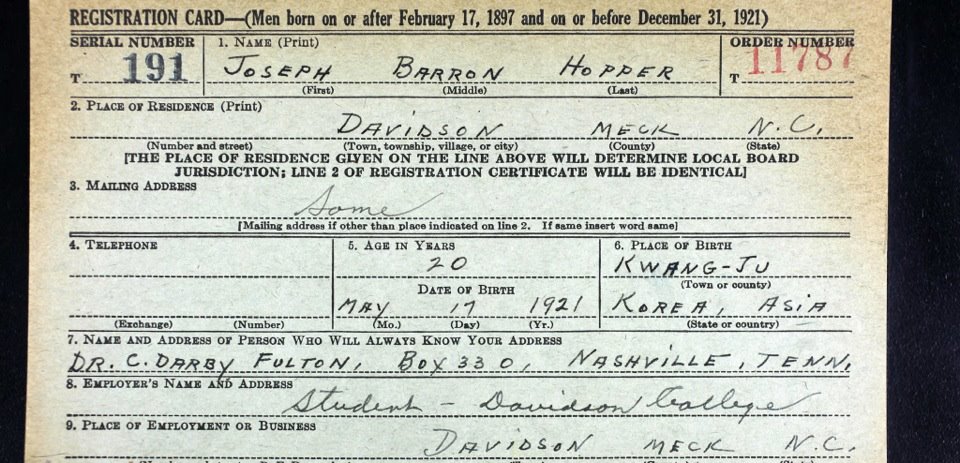 REGISTRATION CARD—(Men born on or after February 17, 1897 and on or before December 31, 1921)
SERIAL NUMBER 1. NAME (Print) ORDER NUMBER
T 191 JOSEPH BARRON HOPPER T 11787
(First) (Middle) (Last)
2. PLACE OF RESIDENCE (Print)
DAVIDSON MECK N.C.
(Number and street) (Town, township, village, or city) (County) (State)
[THE PLACE OF RESIDENCE GIVEN ON THE LINE ABOVE WILL DETERMINE LOCAL BOARD
JURISDICTION; LINE 2 OF REGISTRATION CERTIFICATE WILL BE IDENTICAL]
3. MAILING ADDRESS
Same
[Mailing address if other than place indicated on line 2. If same insert word same]
4. TELEPHONE 5. AGE IN YEARS 6. PLACE OF BIRTH
20 KWANG-JU
DATE OF BIRTH (Town or county)
MAY 17 1921 KOREA, ASIA
(Exchange) (Number) (Mo.) (Day) (Yr.) (State or country)
7. NAME AND ADDRESS OF PERSON WHO WILL ALWAYS KNOW YOUR ADDRESS
DR. C. DARBY FULTON, BOX 330, NASHVILLE, TENN,
8. EMPLOYER'S NAME AND ADDRESS
Student - Davidson College
9. PLACE OF EMPLOYMENT OR BUSINESS
DAVIDSON MECK N.C.